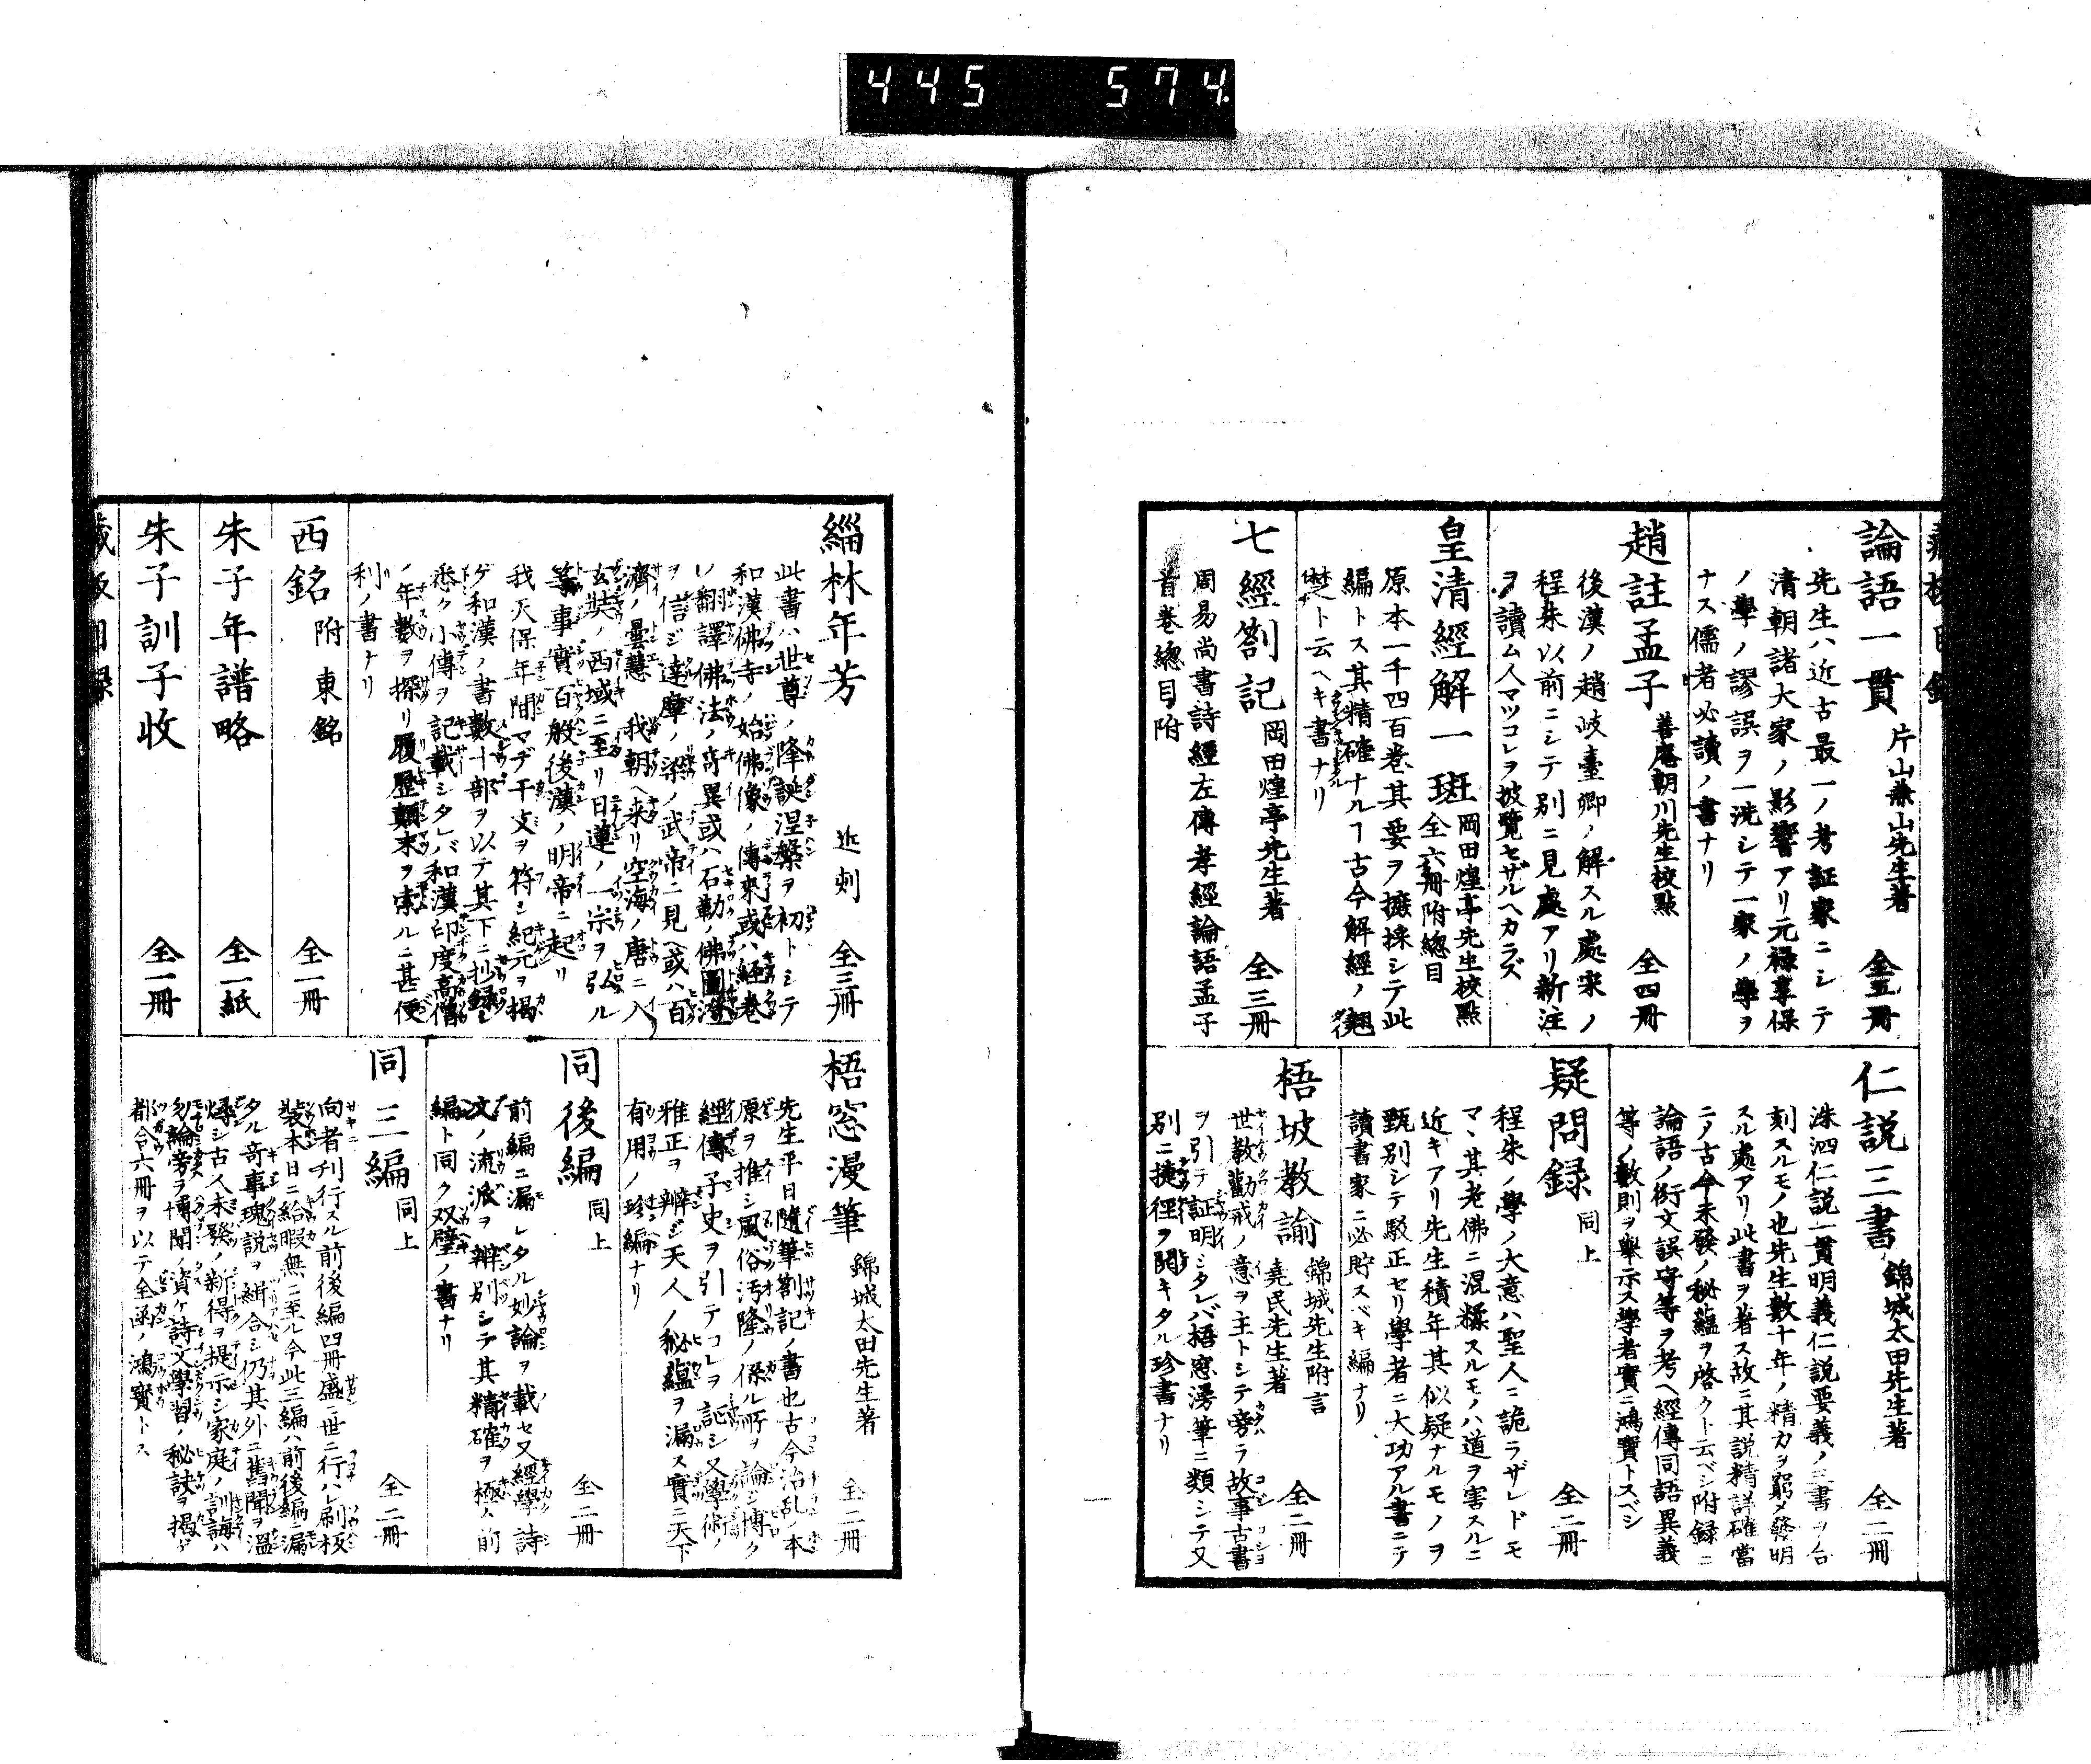 445 574
論語一貫 片山兼山先生著 全五冊
先生ハ近古最一ノ考証家ニシテ
清朝諸大家ノ影響アリ元禄享保
ノ學ノ謬誤ヲ一洗シテ一家ノ學ヲ
ナス儒者必讀ノ書ナリ
趙註孟子 善庵朝川先生校點 全四冊
後漢ノ趙岐臺卿ノ解スル處宋ノ
程朱以前ニシテ別ニ見處アリ新注
ヲ讀ム人マツコレヲ披覽セザルヘカラズ
皇清經解一斑 岡田煌亭先生校點 全六冊附總目
原本一千四百巻其要ヲ摭採シテ此
編トス其精確ナルヿ古今解經ノ翹
楚ト云ヘキ書ナリ
七經劄記 岡田煌亭先生著 全三冊
周易尚書詩經左傳孝經論語孟子
首巻總目附
仁説三書 錦城太田先生著 全二冊
洙泗仁説一貫明義仁説要義ノ三書ヲ合
刻スルモノ也先生數十年ノ精力ヲ窮メ發明
スル處アリ此書ヲ著ス故ニ其説精詳確當
ニノ古今未發ノ秘蘊ヲ啓クト云ベシ附録ニ
論語ノ衍文誤字等ヲ考ヘ經傳同語異義
等ノ數則ヲ舉示ス學者實ニ鴻寶トスベシ
疑問録 同上 全二冊
程朱ノ學ノ大意ハ聖人ニ詭ラザレドモ
マヽ其老佛ニ混糅スルモノハ道ヲ害スルニ
近キアリ先生積年其似疑ナルモノヲ
甄別シテ駁正セリ學者ニ大功アル書ニテ
讀書家ニ必貯スベキ編ナリ
梧坡教諭 錦城先生附言 堯民先生著 全二冊
世教勸戒ノ意ヲ主トシテ旁ラ故事古書
ヲ引テ証明シタレバ梧窓漫筆ニ類シテ又
別ニ捷徑ヲ開キタル珍書ナリ
緇林年芳 近刻 全三冊
此書ハ世尊ノ降誕涅槃ヲ初トシテ
和漢佛寺ノ始佛像ノ傳來或ハ経巻
ノ翻譯佛法ノ奇異或ハ石勒ノ佛圖澄
ヲ信ジ達摩ノ梁ノ武帝ニ見ヘ或ハ百
濟ノ曇慧 我朝ヘ来リ空海ノ唐ニ入
玄奘ノ西域ニ至リ日蓮ノ一宗ヲ弘ル
等事實百般後漢ノ明帝ニ起リ
我天保年間マデ干支ヲ符シ紀元ヲ掲
ゲ和漢ノ書數十部ヲ以テ其下ニ抄録シ
悉ク小傳ヲ記載シタレバ和漢印度高僧
ノ年數ヲ探リ履歴顛末ヲ索ルニ甚便
利ノ書ナリ
西銘 附東銘 全一冊
朱子年譜略 全一紙
朱子訓子收 全一冊
梧窓漫筆 錦城太田先生著 全二冊
先生平日隨筆劄記ノ書也古今治乱ノ本
原ヲ推シ風俗汚隆ノ係ル所ヲ論ジ博ク
經傳子史ヲ引テコレヲ証シ又學術ノ
雅正ヲ辨ジ天人ノ秘蘊ヲ漏ス實ニ天下
有用ノ珍編ナリ
同後編 同上 全二冊
前編ニ漏レタル妙論ヲ載セ又經學詩
文ノ流派ヲ辨別シテ其精確ヲ極ム前
編ト同ク双璧ノ書ナリ
同三編 同上 全二冊
向者刊行スル前後編四冊盛ニ世ニ行ハレ刷板
裝本日ニ給暇無ニ至ル今此三編ハ前後編ニ漏
タル奇事瑰説ヲ緝合シ仍其外ニ舊聞ヲ温
燖シ古人未發ノ新得ヲ提示シ家庭ノ訓誨ハ
勿論旁ラ博聞ノ資ケ詩文學習ノ秘訣ヲ掲ゲ
都合六冊ヲ以テ全函ノ鴻寶トス